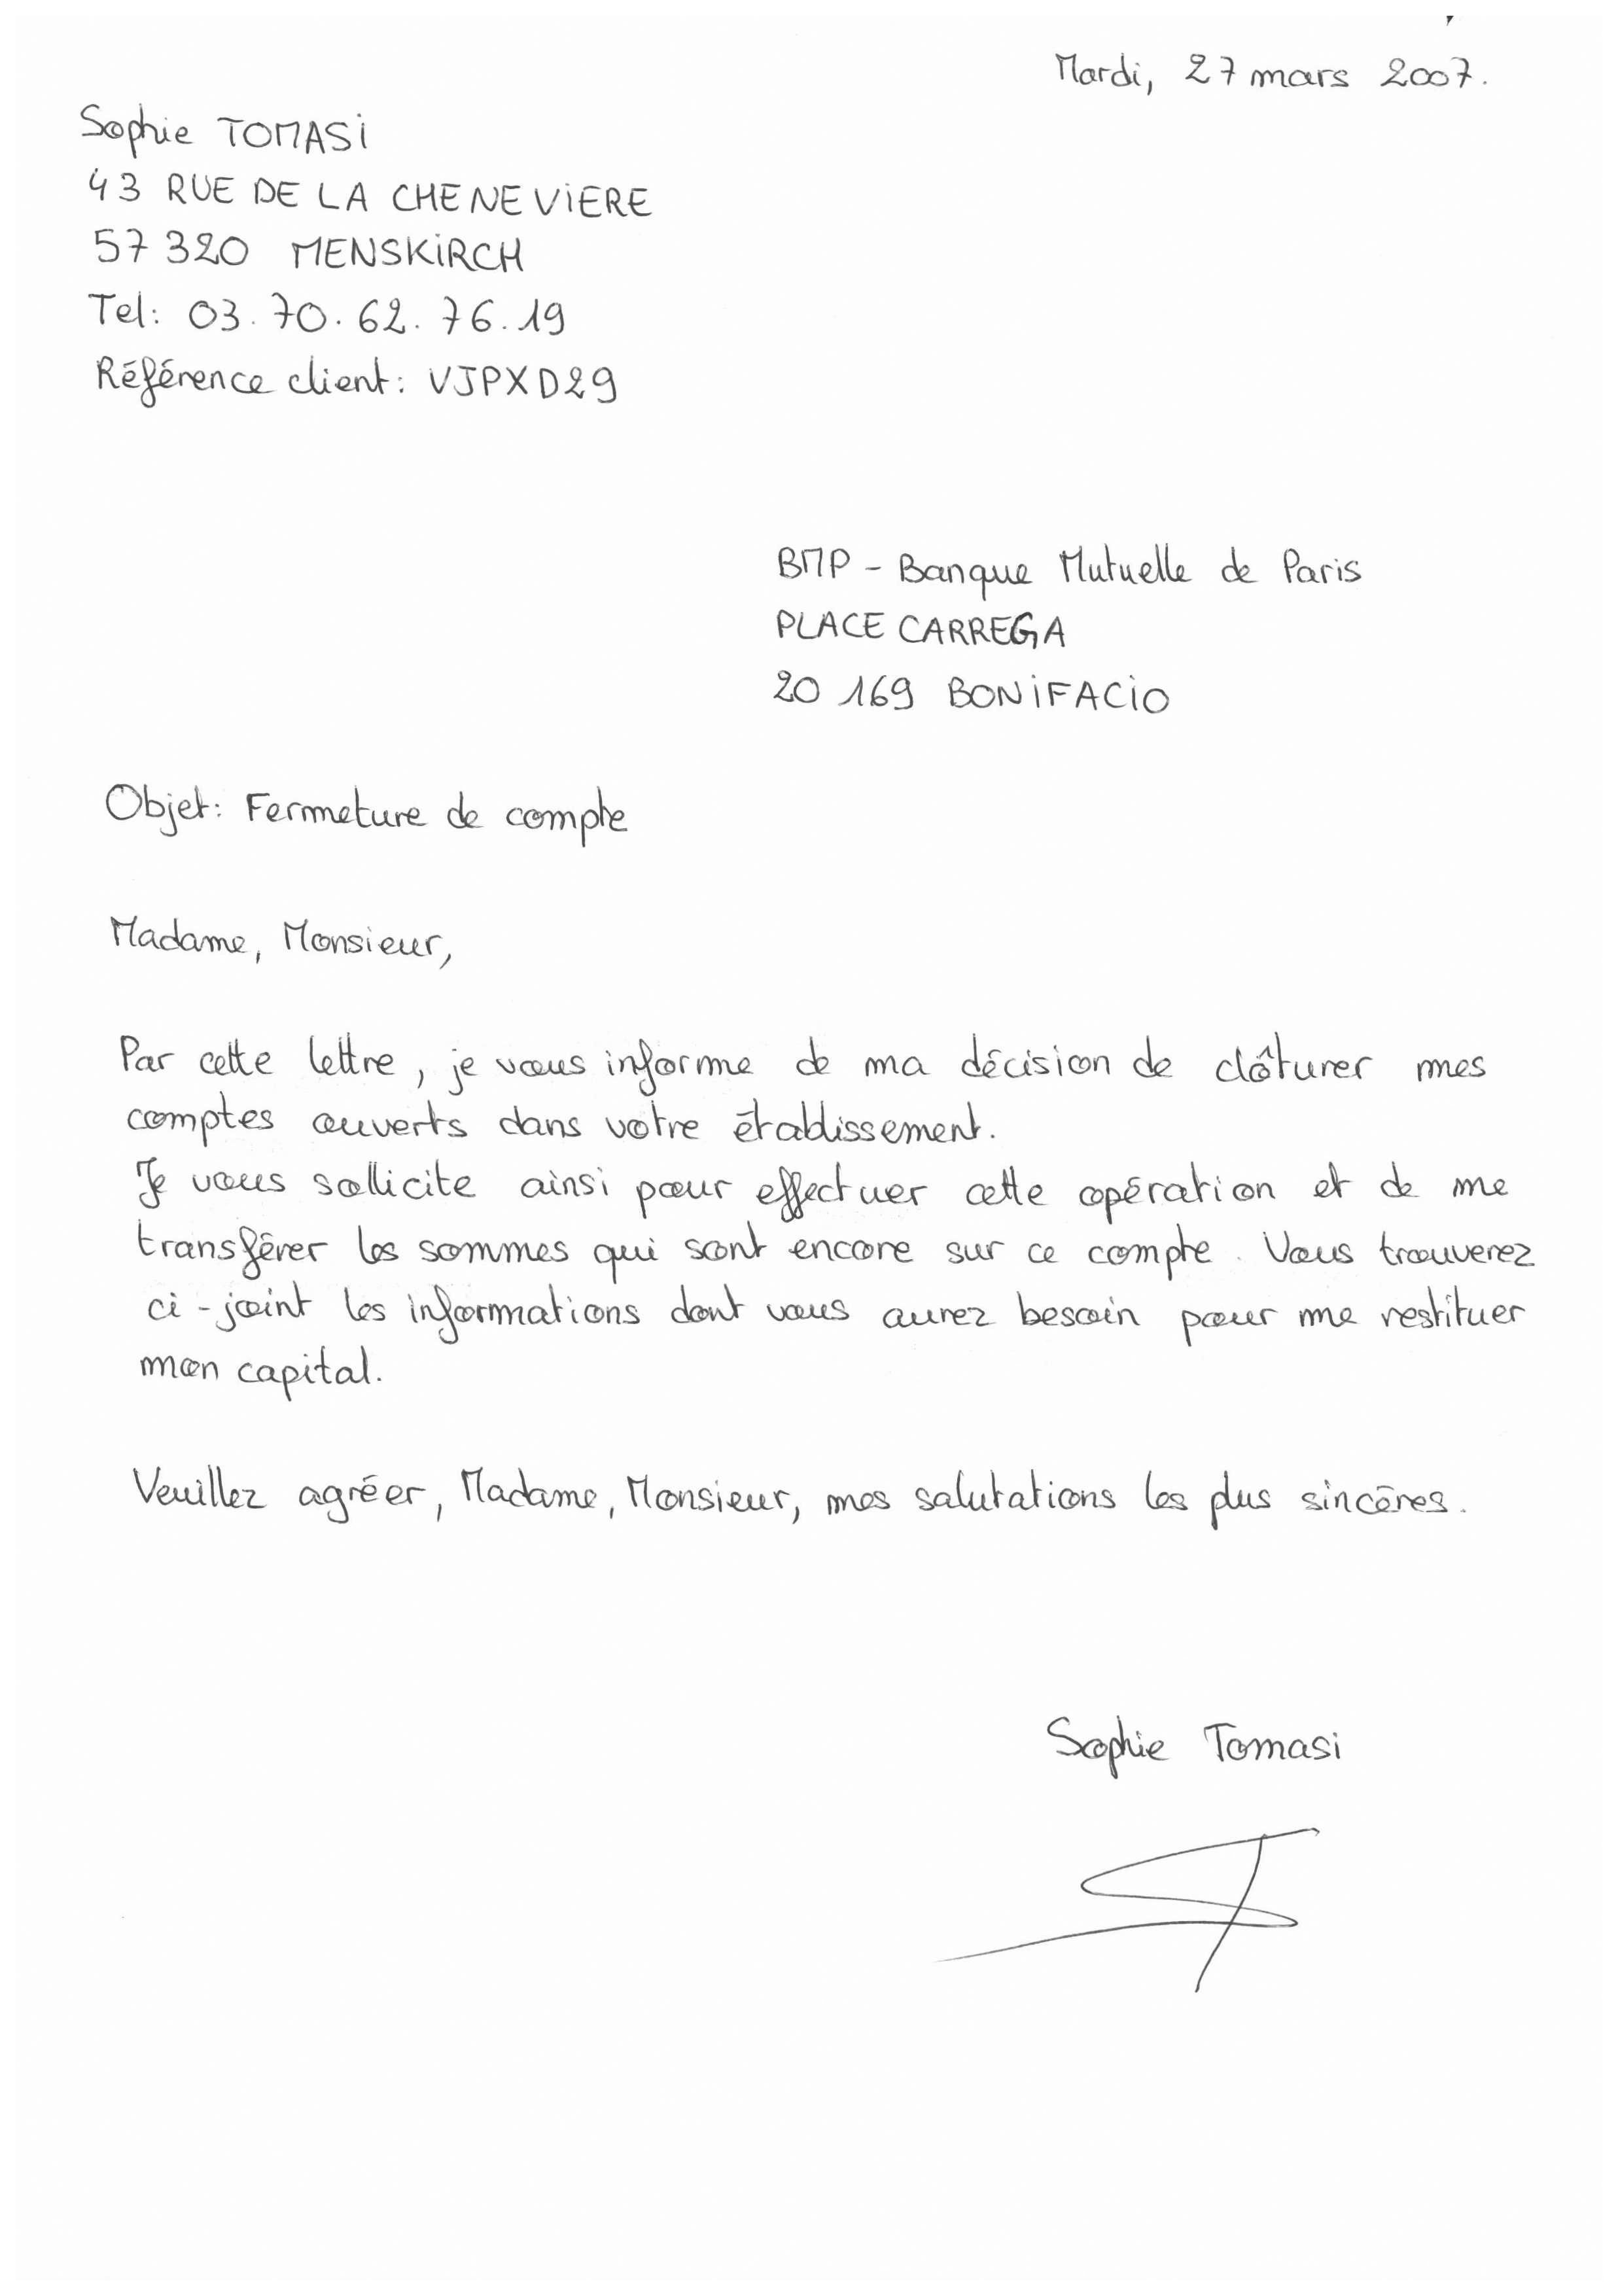 Mardi, 27 mars 2007.
Sophie TOMASI
43 RUE DE LA CHENEVIERE
57 320 MENSKIRCH
Tel: 03.70.62.76.19
Référence client: VJPXD29
BMP - Banque Mutuelle de Paris
PLACE CARREGA
20 169 BONIFACIO
Objet: Fermeture de compte
Madame, Monsieur,
Par cette lettre, je vous informe de ma décision de clôturer mes
comptes ouverts dans votre établissement.
Je vous sollicite ainsi pour effectuer cette opération et de me
transférer les sommes qui sont encore sur ce compte. Vous trouverez
ci-joint les informations dont vous aurez besoin pour me restituer
mon capital.
Veuillez agréer, Madame, Monsieur, mes salutations les plus sincères.
Sophie Tomasi